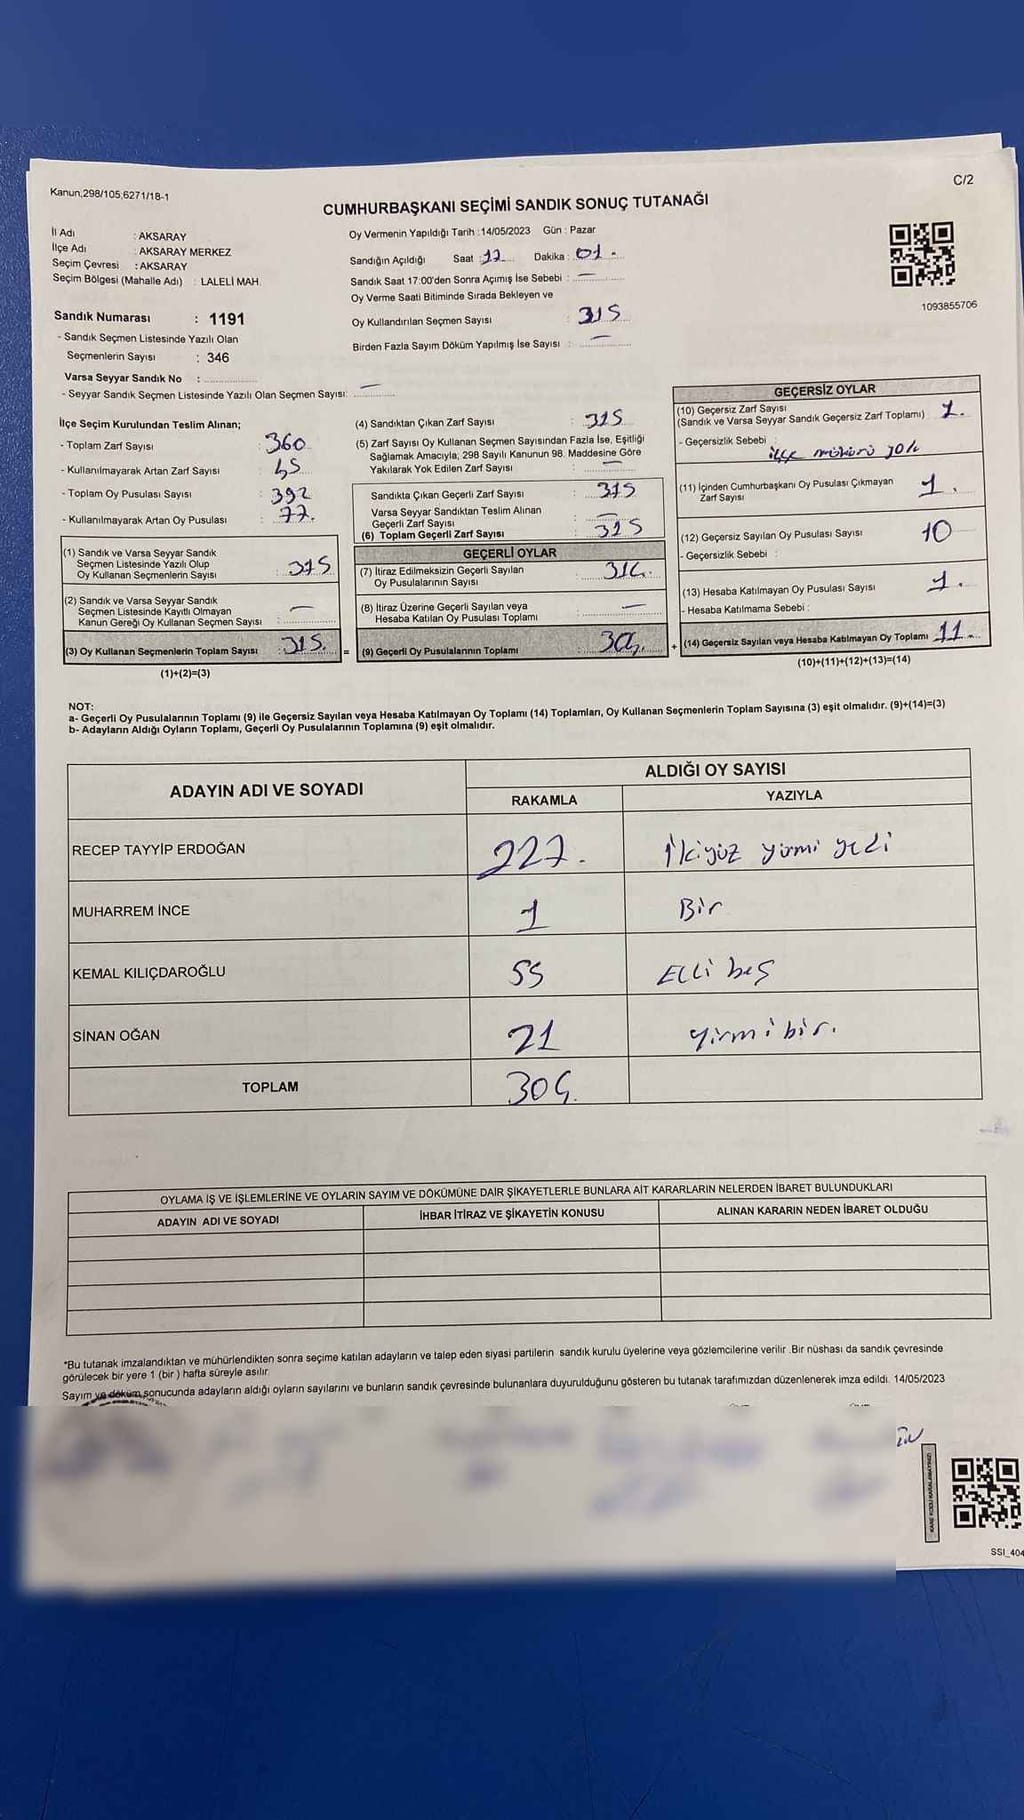 Kanun,298/105,6271/18-1
C/2
CUMHURBAŞKANI SEÇİMİ SANDIK SONUÇ TUTANAĞI
İl Adı : AKSARAY
İlçe Adı : AKSARAY MERKEZ
Seçim Çevresi : AKSARAY
Seçim Bölgesi (Mahalle Adı) : LALELİ MAH.
Sandık Numarası : 1191
- Sandık Seçmen Listesinde Yazılı Olan
Seçmenlerin Sayısı : 346
Varsa Seyyar Sandık No :
- Seyyar Sandık Seçmen Listesinde Yazılı Olan Seçmen Sayısı: —
Oy Vermenin Yapıldığı Tarih :14/05/2023 Gün : Pazar
Sandığın Açıldığı Saat : 17 Dakika : 01.
Sandık Saat 17:00'den Sonra Açımış İse Sebebi : —
Oy Verme Saati Bitiminde Sırada Bekleyen ve
Oy Kullandırılan Seçmen Sayısı : 315
Birden Fazla Sayım Döküm Yapılmış İse Sayısı : —
1093855706
İlçe Seçim Kurulundan Teslim Alınan;
- Toplam Zarf Sayısı : 360
- Kullanılmayarak Artan Zarf Sayısı : 45
- Toplam Oy Pusulası Sayısı : 392
- Kullanılmayarak Artan Oy Pusulası : 77.
(1) Sandık ve Varsa Seyyar Sandık
Seçmen Listesinde Yazılı Olup
Oy Kullanan Seçmenlerin Sayısı : 315
(2) Sandık ve Varsa Seyyar Sandık
Seçmen Listesinde Kayıtlı Olmayan
Kanun Gereği Oy Kullanan Seçmen Sayısı : —
(3) Oy Kullanan Seçmenlerin Toplam Sayısı : 315. =
(1)+(2)=(3)
(4) Sandıktan Çıkan Zarf Sayısı : 315
(5) Zarf Sayısı Oy Kullanan Seçmen Sayısından Fazla İse, Eşitliği
Sağlamak Amacıyla; 298 Sayılı Kanunun 98. Maddesine Göre
Yakılarak Yok Edilen Zarf Sayısı : —
Sandıkta Çıkan Geçerli Zarf Sayısı : 315
Varsa Seyyar Sandıktan Teslim Alınan
Geçerli Zarf Sayısı : —
(6) Toplam Geçerli Zarf Sayısı : 315
GEÇERLİ OYLAR
(7) İtiraz Edilmeksizin Geçerli Sayılan
Oy Pusulalarının Sayısı :
(8) İtiraz Üzerine Geçerli Sayılan veya
Hesaba Katılan Oy Pusulası Toplamı : —
(9) Geçerli Oy Pusulalarının Toplamı : 304. +
GEÇERSİZ OYLAR
(10) Geçersiz Zarf Sayısı
(Sandık ve Varsa Seyyar Sandık Geçersiz Zarf Toplamı) 1.
- Geçersizlik Sebebi :
ilçe mührü yok
(11) İçinden Cumhurbaşkanı Oy Pusulası Çıkmayan
Zarf Sayısı : 1.
(12) Geçersiz Sayılan Oy Pusulası Sayısı : 10
- Geçersizlik Sebebi :
(13) Hesaba Katılmayan Oy Pusulası Sayısı : 1.
- Hesaba Katılmama Sebebi :
(14) Geçersiz Sayılan veya Hesaba Katılmayan Oy Toplamı 11.
(10)+(11)+(12)+(13)=(14)
NOT:
a- Geçerli Oy Pusulalarının Toplamı (9) ile Geçersiz Sayılan veya Hesaba Katılmayan Oy Toplamı (14) Toplamları, Oy Kullanan Seçmenlerin Toplam Sayısına (3) eşit olmalıdır. (9)+(14)=(3)
b- Adayların Aldığı Oyların Toplamı, Geçerli Oy Pusulalarının Toplamına (9) eşit olmalıdır.
ADAYIN ADI VE SOYADI
ALDIĞI OY SAYISI
RAKAMLA YAZIYLA
RECEP TAYYİP ERDOĞAN 227. İkiyüz yirmi yedi
MUHARREM İNCE 1 Bir
KEMAL KILIÇDAROĞLU 55 Elli beş
SİNAN OĞAN 21 yirmi bir.
TOPLAM 304.
OYLAMA İŞ VE İŞLEMLERİNE VE OYLARIN SAYIM VE DÖKÜMÜNE DAİR ŞİKAYETLERLE BUNLARA AİT KARARLARIN NELERDEN İBARET BULUNDUKLARI
ADAYIN ADI VE SOYADI İHBAR İTİRAZ VE ŞİKAYETİN KONUSU ALINAN KARARIN NEDEN İBARET OLDUĞU
*Bu tutanak imzalandıktan ve mühürlendikten sonra seçime katılan adayların ve talep eden siyasi partilerin sandık kurulu üyelerine veya gözlemcilerine verilir .Bir nüshası da sandık çevresinde
görülecek bir yere 1 (bir ) hafta süreyle asılır.
Sayım ve döküm sonucunda adayların aldığı oyların sayılarını ve bunların sandık çevresinde bulunanlara duyurulduğunu gösteren bu tutanak tarafımızdan düzenlenerek imza edildi. 14/05/2023
KARE KODU KARALAMAYINIZ!
SSI_404